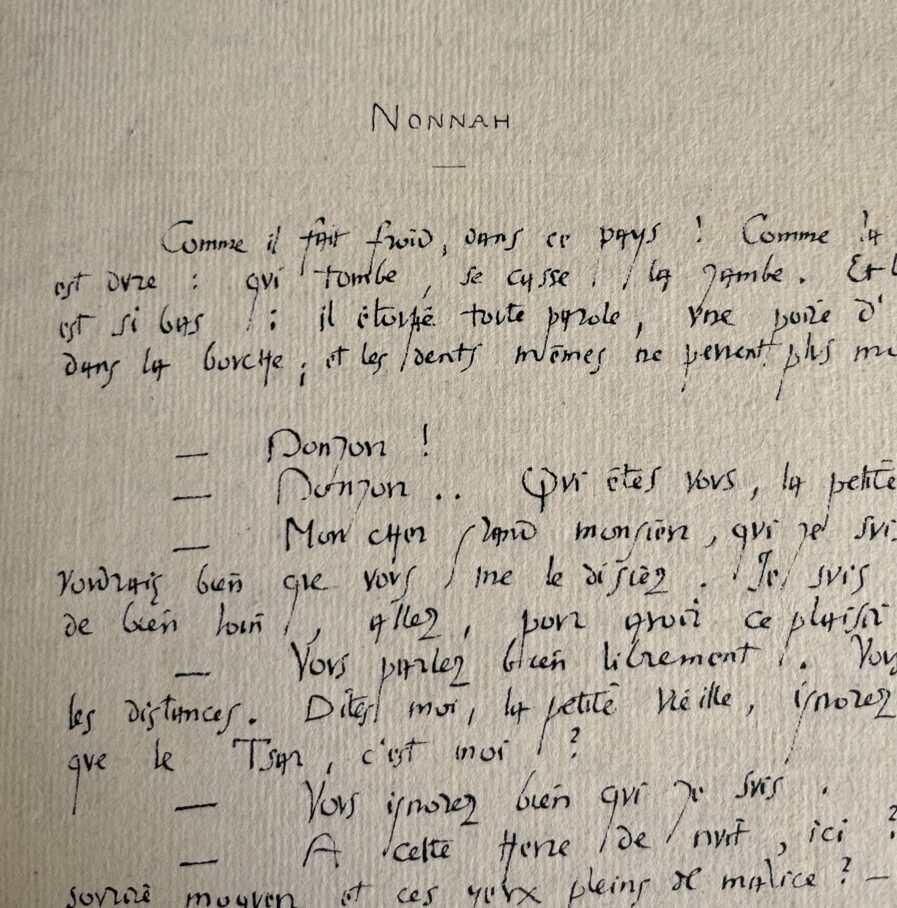 NONNAH
Comme il fait froid, dans ce pays ! Comme la
est dure : qui tombe, se casse la jambe. Et l
est si bas : il étouffe toute parole, une poire d'
dans la bouche ; et les dents mêmes ne peuvent plus
— Donjon !
— Donjon .. Qui êtes vous, la petite
— Mon cher grand monsieur, qui je suis
voudrais bien que vous me le disiez. Je suis
de bien loin, allez, pour avoir ce plaisir
— Vous parlez bien librement. Vous
les distances. Dites moi, la petite vieille, ignorez
que le Tsar, c'est moi ?
— Vous ignorez bien qui je suis.
— A cette heure de nuit, ici ?
sourire moqueur et ces yeux pleins de malice ? —